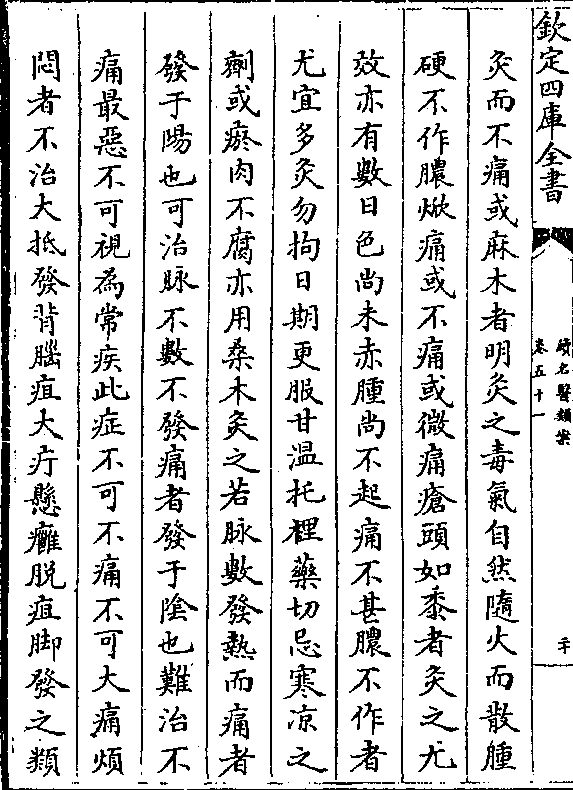 欽定四庫全書
續名醫類案
卷五十一
二十
灸而不痛或麻木者明灸之毒氣自然隨火而散腫
硬不作膿焮痛或不痛或微痛瘡頭如黍者灸之尤
效亦有數日色尚未赤腫尚不起痛不甚膿不作者
尤宜多灸勿拘日期更服甘温托裡藥切忌寒凉之
劑或瘀肉不腐亦用桑木灸之若脉數發熱而痛者
發于陽也可治脉不數不發痛者發于陰也難治不
痛最惡不可視為常疾此症不可不痛不可大痛煩
悶者不治大抵發背腦疽大疔懸癰脱疽脚發之類